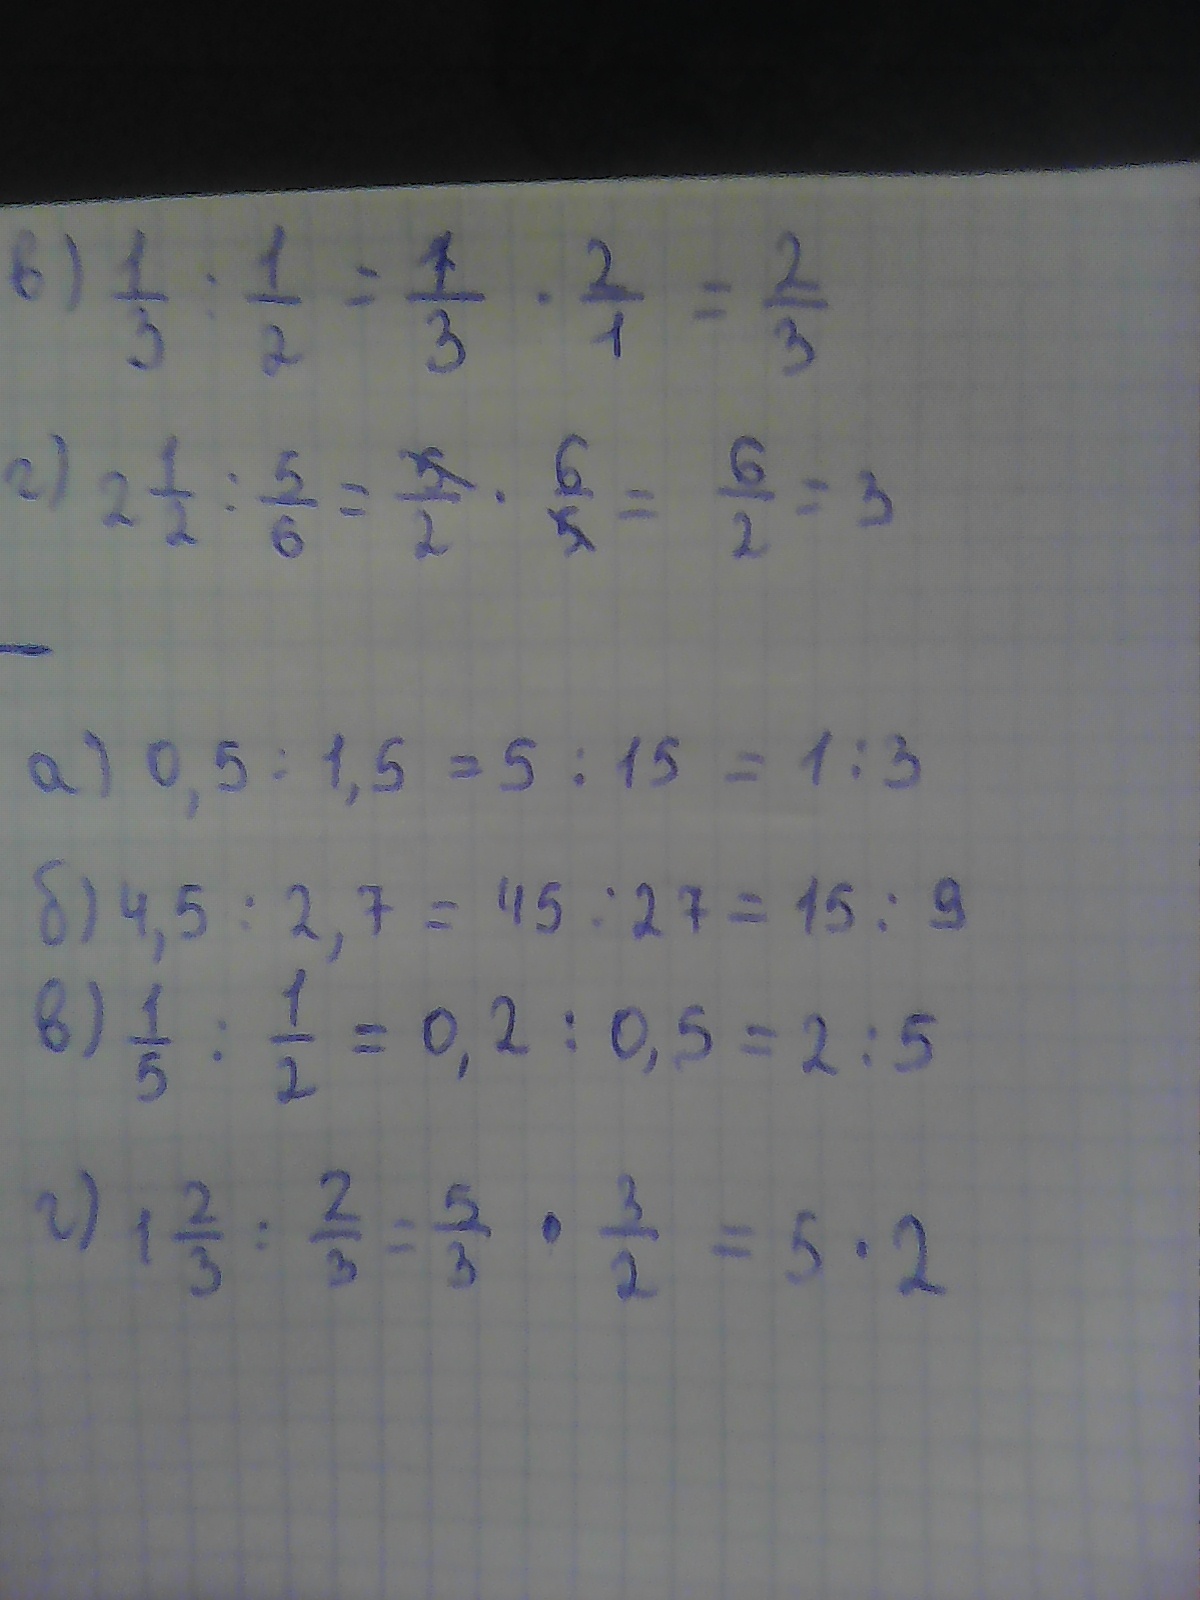 в) 1/3 : 1/2 = 1/3 · 2/1 = 2/3
г) 2 1/2 : 5/6 = 5/2 · 6/5 = 6/2 = 3
а) 0,5 : 1,5 = 5 : 15 = 1 : 3
б) 4,5 : 2,7 = 45 : 27 = 15 : 9
в) 1/5 : 1/2 = 0,2 : 0,5 = 2 : 5
г) 1 2/3 : 2/3 = 5/3 · 3/2 = 5 · 2